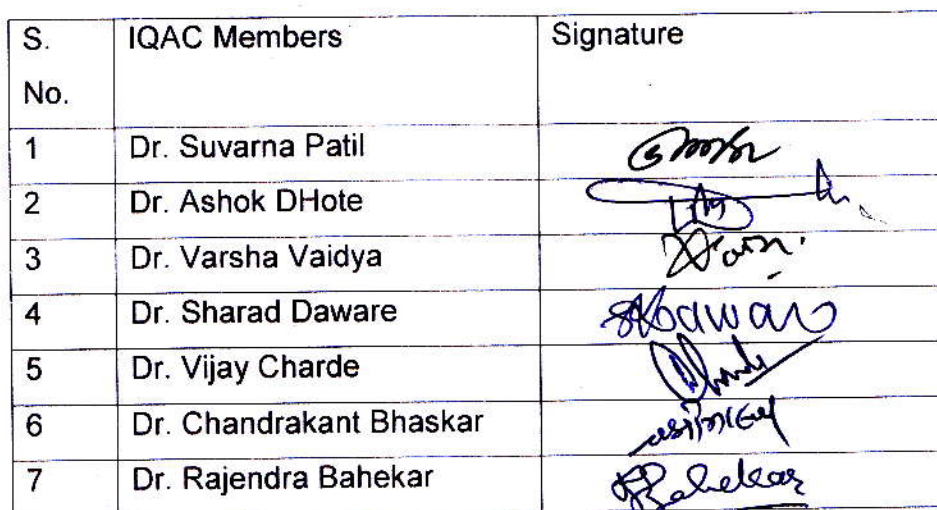 S. No. IQAC Members Signature
1 Dr. Suvarna Patil
2 Dr. Ashok DHote
3 Dr. Varsha Vaidya
4 Dr. Sharad Daware
5 Dr. Vijay Charde
6 Dr. Chandrakant Bhaskar
7 Dr. Rajendra Bahekar RBahekar